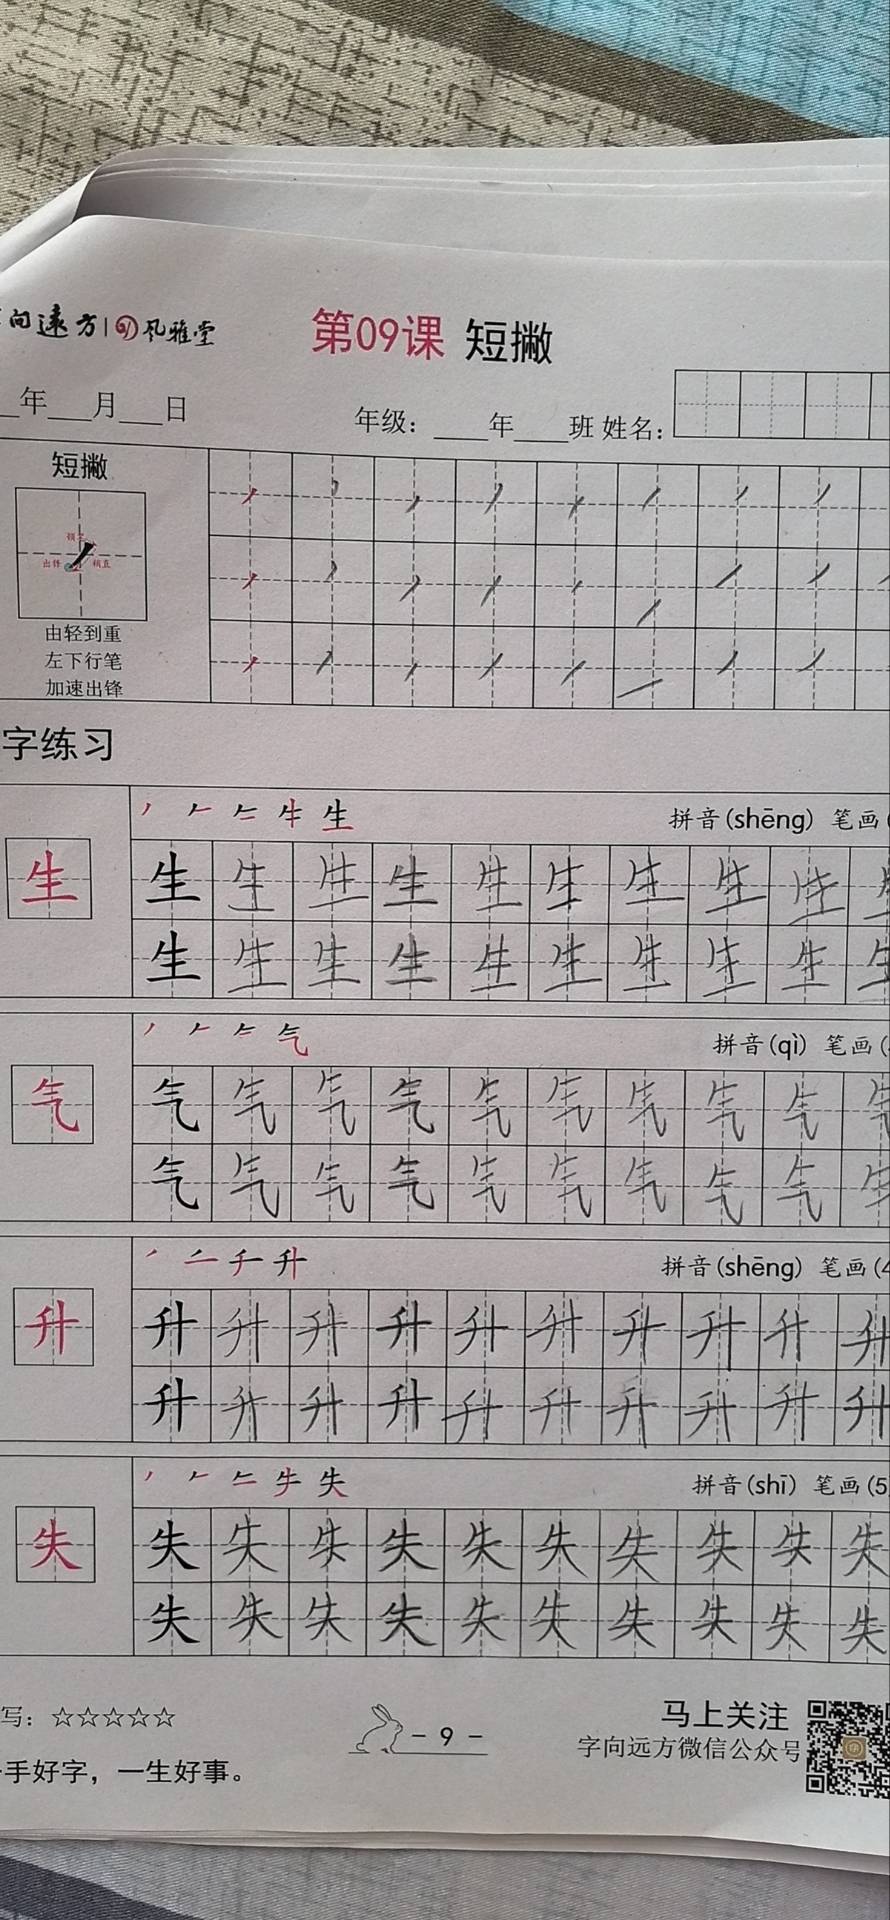 向远方 风雅堂
第09课 短撇
年___月___日 年级：___年___班 姓名：
短撇
出锋 稍直
由轻到重
左下行笔
加速出锋
字练习
拼音(shēng) 笔画(
生 生 生 生 生 生 生 生 生 生
生 生 生 生 生 生 生 生 生 生 生
拼音(qì) 笔画(
气 气 气 气 气 气 气 气 气 气
气 气 气 气 气 气 气 气 气 气 气
拼音(shēng) 笔画(4
升 升 升 升 升 升 升 升 升 升
升 升 升 升 升 升 升 升 升 升 升
拼音(shī) 笔画(5
失 失 失 失 失 失 失 失 失 失
失 失 失 失 失 失 失 失 失 失 失
写：☆☆☆☆☆
- 9 -
马上关注
字向远方微信公众号
手好字，一生好事。